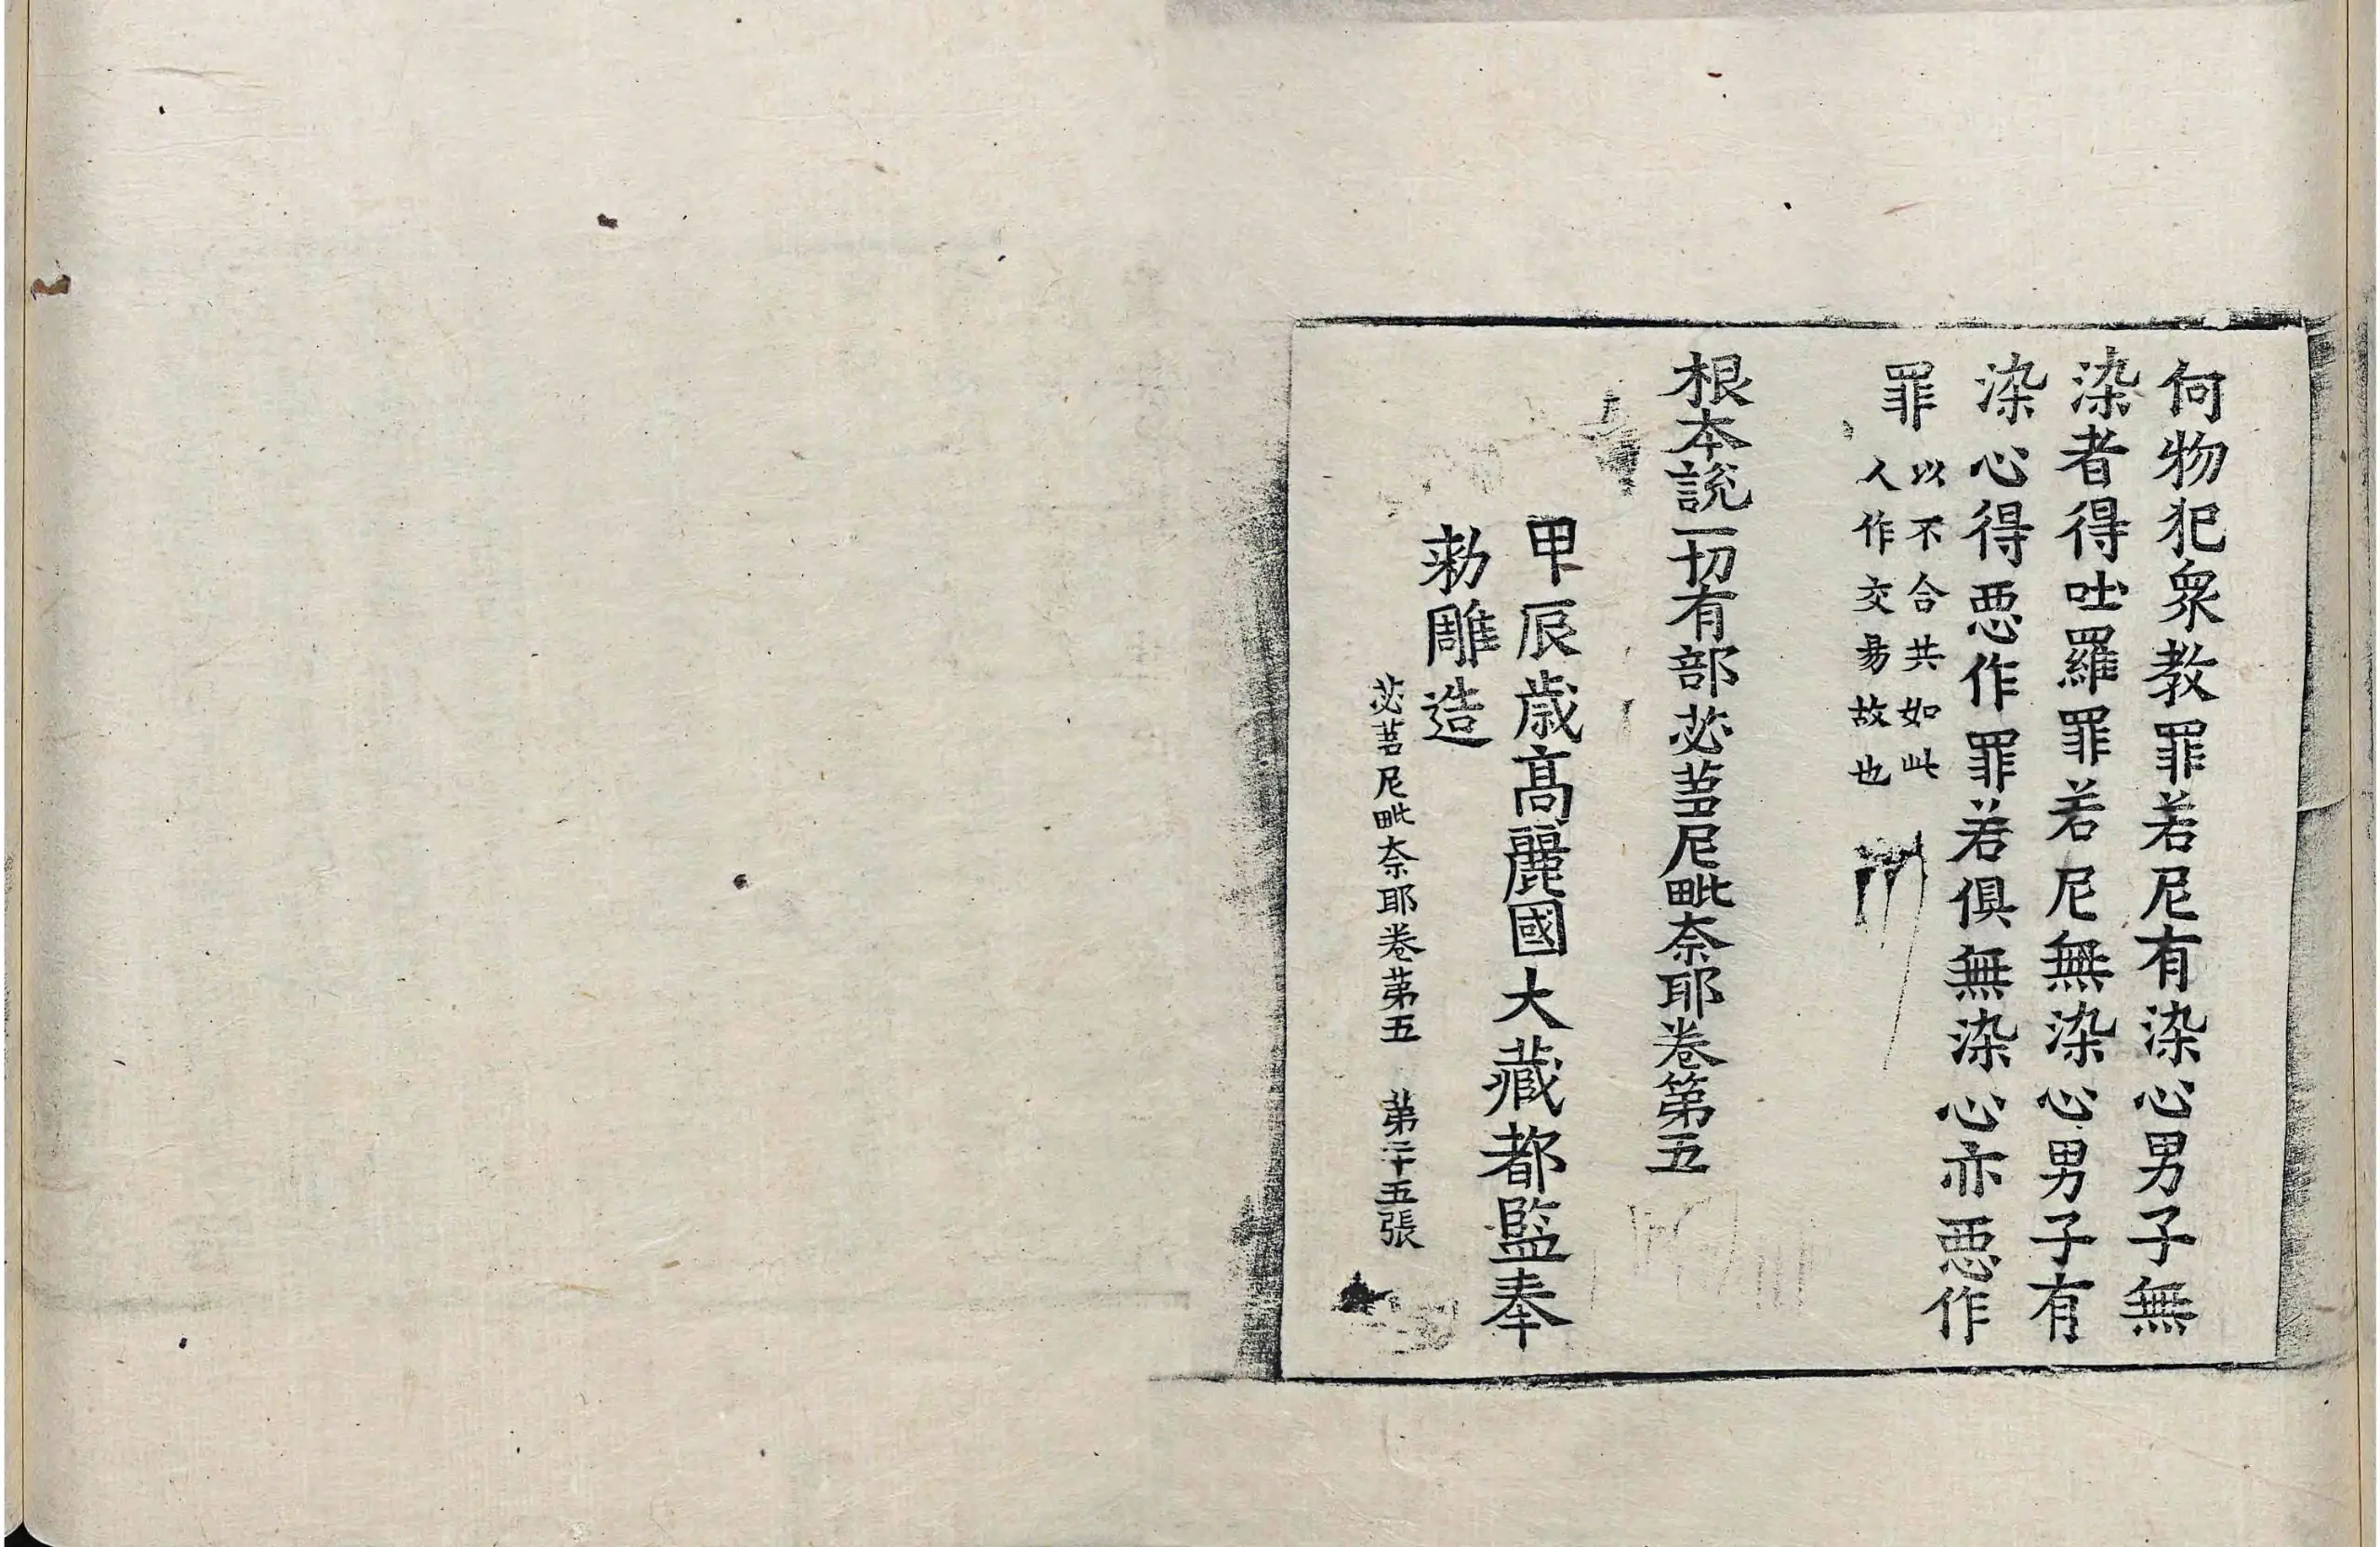 何物犯衆教罪若尼有染心男子無
染者得吐羅罪若尼無染心男子有
染心得惡作罪若俱無染心亦惡作
罪以不合共如此
人作交易故也
根本說一切有部苾芻尼毗奈耶卷第五
甲辰歲高麗國大藏都監奉
勅雕造
苾芻尼毗奈耶卷苐五 苐二十五張